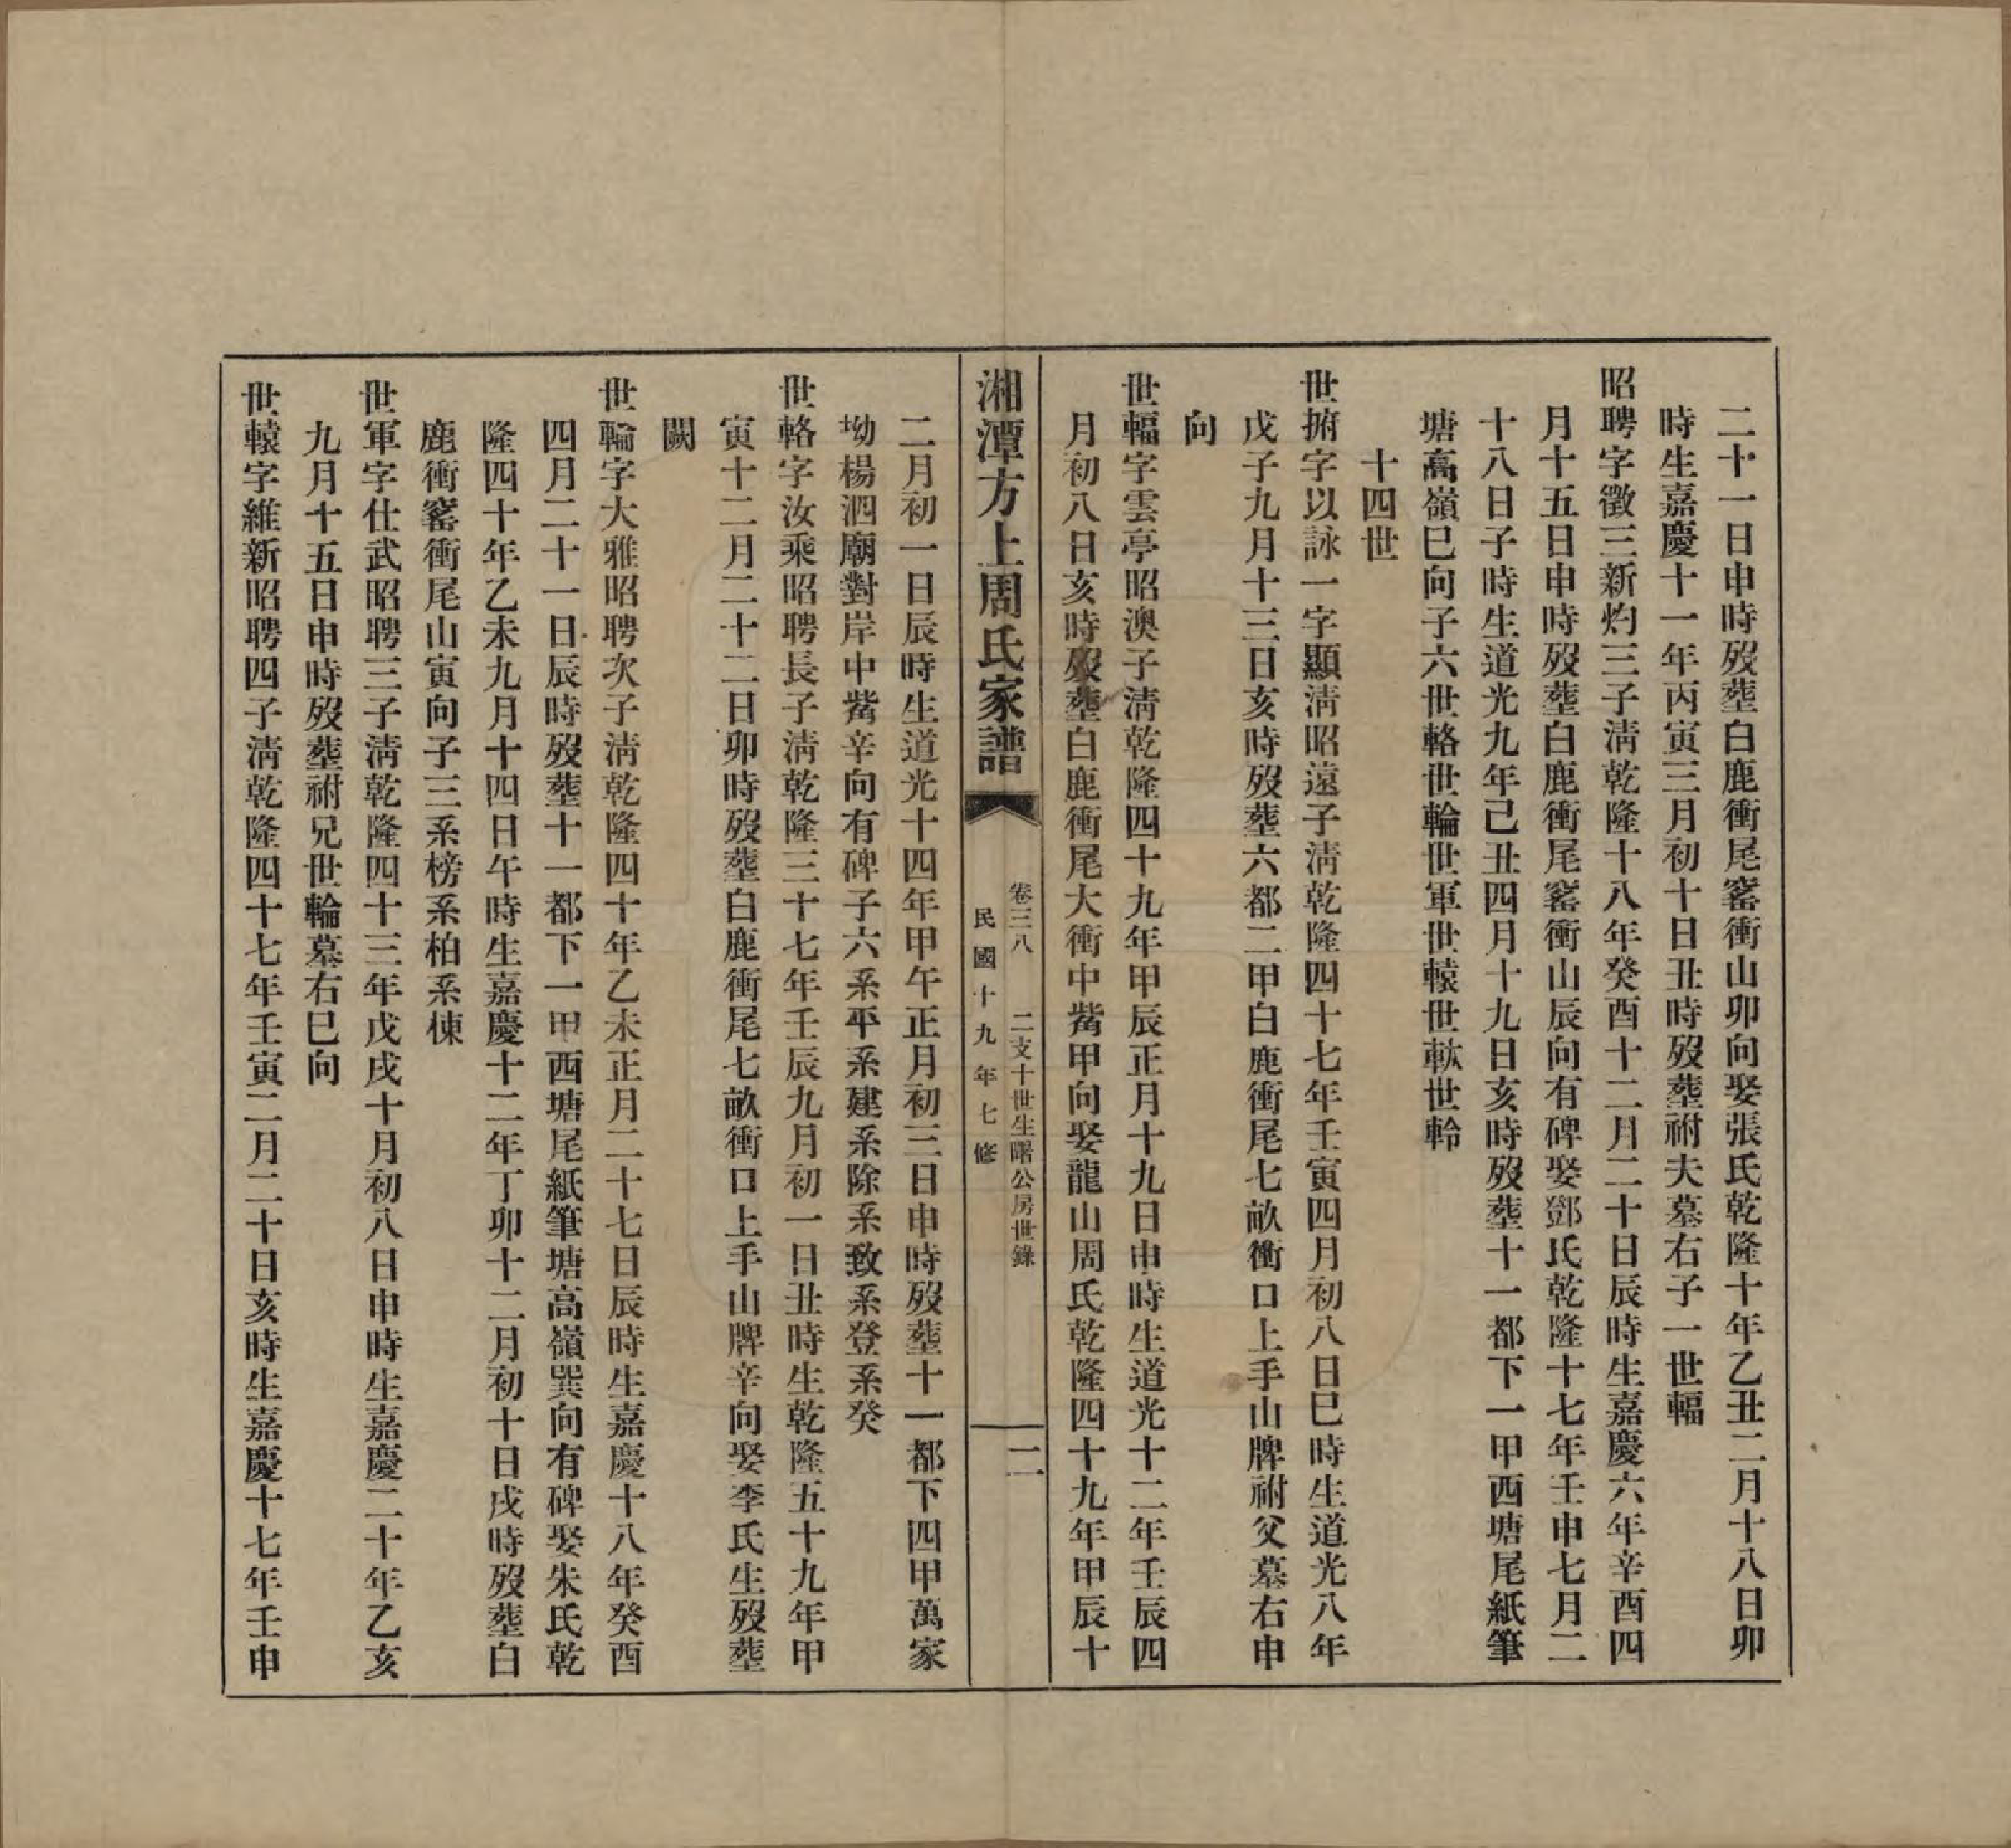 二十一日申時歿塟白鹿衝尾窰衝山卯向娶張氏乾隆十年乙丑二月十八日卯
時生嘉慶十一年丙寅三月初十日丑時歿塟祔夫墓右子一世輻
昭聘字徵三新灼三子淸乾隆十八年癸酉十二月二十日辰時生嘉慶六年辛酉四
月十五日申時歿塟白鹿衝尾窰衝山辰向有碑娶鄧氏乾隆十七年壬申七月二
十八日子時生道光九年己丑四月十九日亥時歿塟十一都下一甲西塘尾紙筆
塘高嶺巳向子六世輅世輪世軍世轅世軑世軨
十四世
世捬字以詠一字顯淸昭遠子淸乾隆四十七年壬寅四月初八日巳時生道光八年
戊子九月十三日亥時歿塟六都二甲白鹿衝尾七畝衝口上手山牌祔父墓右申
向
世輻字雲亭昭澳子淸乾隆四十九年甲辰正月十九日申時生道光十二年壬辰四
月初八日亥時歿塟白鹿衝尾大衝中觜甲向娶龍山周氏乾隆四十九年甲辰十
湘潭方上周氏家譜
卷三八 二支十世生曙公房世錄
民國十九年七修
二
二月初一日辰時生道光十四年甲午正月初三日申時歿塟十一都下四甲萬家
坳楊泗廟對岸中觜辛向有碑子六系平系建系除系致系登系癸
世輅字汝乘昭聘長子淸乾隆三十七年壬辰九月初一日丑時生乾隆五十九年甲
寅十二月二十二日卯時歿塟白鹿衝尾七畝衝口上手山牌辛向娶李氏生歿塟
闕
世輪字大雅昭聘次子淸乾隆四十年乙未正月二十七日辰時生嘉慶十八年癸酉
四月二十一日辰時歿塟十一都下一甲西塘尾紙筆塘高嶺巽向有碑娶朱氏乾
隆四十年乙未九月十四日午時生嘉慶十二年丁卯十二月初十日戌時歿塟白
鹿衝窰衝尾山寅向子三系榜系柏系棟
世軍字仕武昭聘三子淸乾隆四十三年戊戌十月初八日申時生嘉慶二十年乙亥
九月十五日申時歿塟祔兄世輪墓右巳向
世轅字維新昭聘四子淸乾隆四十七年壬寅二月二十日亥時生嘉慶十七年壬申